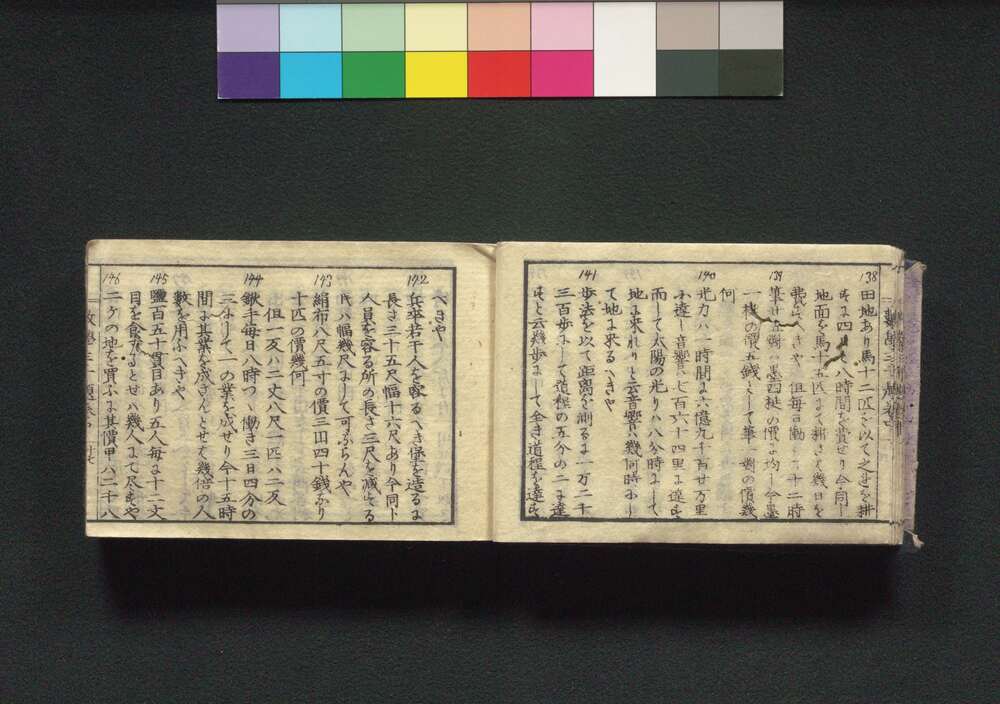 138
田地あり馬十二匹を以て之を耕
すに四日と八時間を費せり今同し
地面を馬十五匹にて耕さは幾日を
費すへきや但毎日働く十二時
139
筆廿五対ハ墨四挺の價に均し今墨
一挺の價五銭として筆一対の價幾
何
140
光力ハ一時間に六億九千百廿万里
に達し音響ハ七百六十四里に達す
而して太陽の光りハ八分時にして
地に来れりと云音響ハ幾何時にし
て地に来るへきや
141
歩法を以て距離を測るに一万二千
三百歩にして道程の五分の二に達
すと云幾歩にして全き道程を達す
へきや
142
兵卒若干人を容るへき堡を造るに
長さ三十五尺幅十六尺あり今同し
人員を容る所の長さ三尺を減する
氏ハ幅幾尺にして可ならんや
143
絹布八尺五寸の價三円四十銭なり
十匹の價幾何
但一反ハ二丈八尺一匹ハ二反
144
鍬手毎日八時つゝ働き三日四分の
三にして一の業を成せり今十五時
間に其業を成さんとせは幾倍の人
數を用ふへきや
145
鹽百五十貫目あり五人毎に十二文
目を食するとせハ幾人にて尽すや
146
二ヶの地を買ふに其價甲ハ二千八